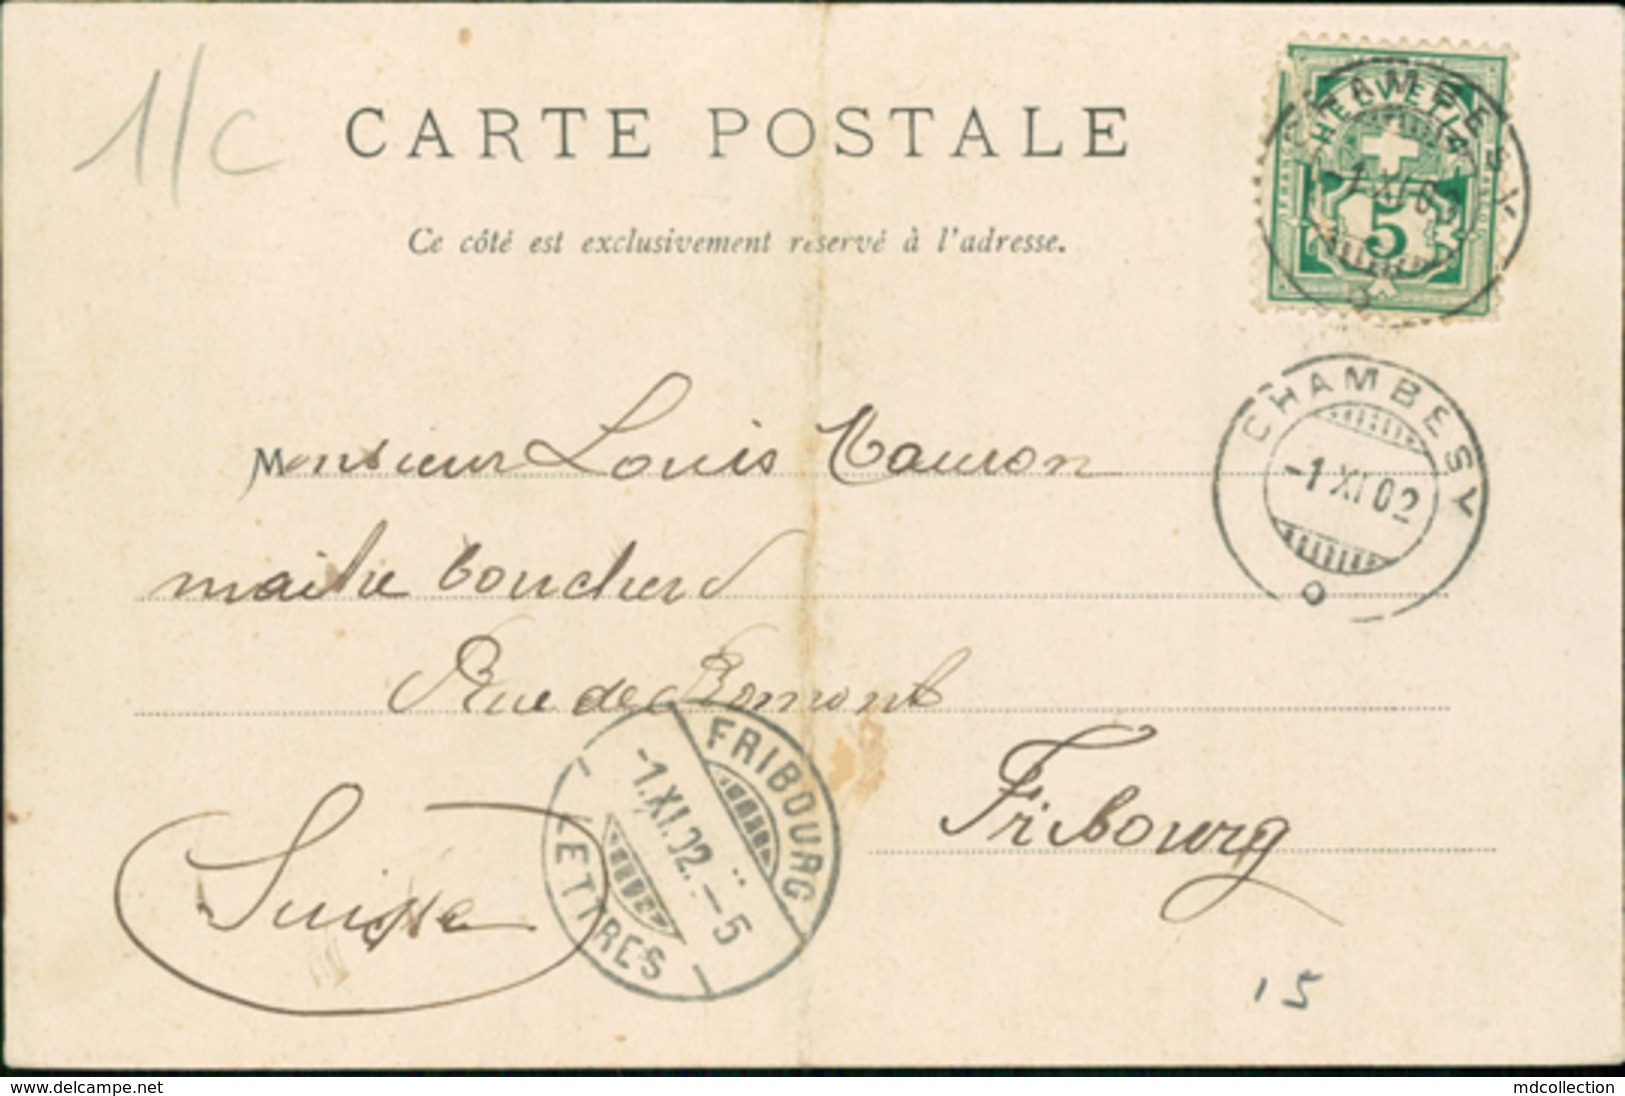 1/c
CARTE POSTALE
Ce côté est exclusivement réservé à l'adresse.
HELVETIA
5
CHAMBESY
-1 XI 02
CHAMBESY
-1 XI 02
Monsieur Louis Mauron
maître boucher
Rue de Romont
Fribourg
Suisse
FRIBOURG
-1.XI.02.-5
LETTRES
15
www.delcampe.net
mdcollection